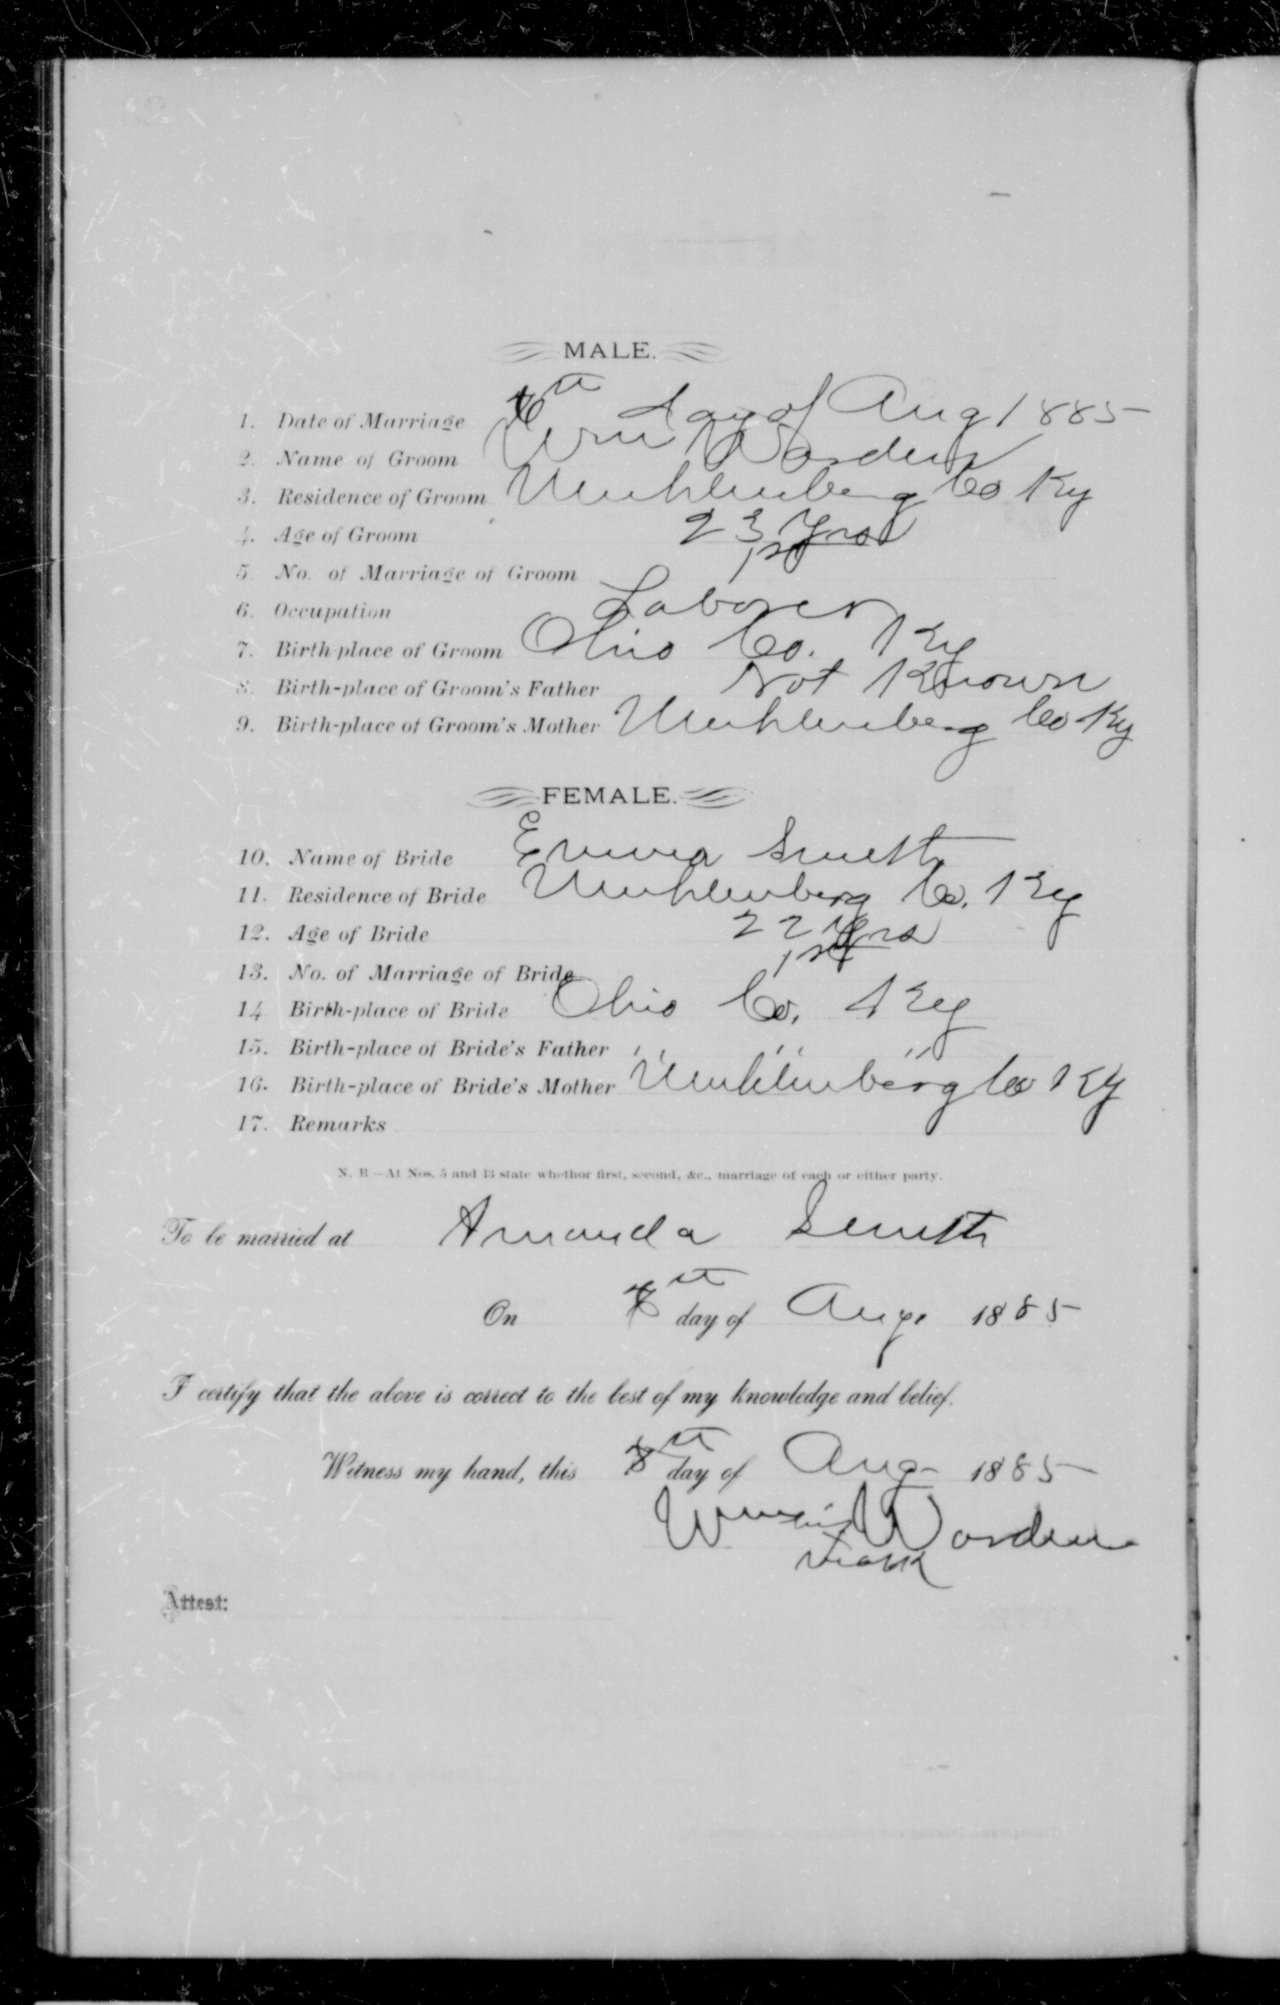 MALE.
1. Date of Marriage th day of Aug 1885
2. Name of Groom Wm Worden
3. Residence of Groom Muhlenberg Co Ky
4. Age of Groom 23 Yrs
5 No. of Marriage of Groom 1st
6. Occupation Laborer
7. Birth-place of Groom Ohio Co. Ky
8. Birth-place of Groom's Father Not Known
9. Birth-place of Groom's Mother Muhlenberg Co Ky
FEMALE.
10. Name of Bride Emma Smith
11. Residence of Bride Muhlenberg Co. Ky
12. Age of Bride 22 Yrs
13. No. of Marriage of Bride 1st
14 Birth-place of Bride Ohio Co. Ky
15. Birth-place of Bride's Father " " "
16. Birth-place of Bride's Mother Muhlenberg Co Ky
17. Remarks
N. B.—At Nos. 5 and 13 state whethor first, second, &c., marriage of each or either party.
To be married at Amanda Smith
On th day of Aug. 1885
I certify that the above is correct to the best of my knowledge and belief.
Witness my hand, this th day of Aug 1885
Wm his x Worden
mark
Attest: